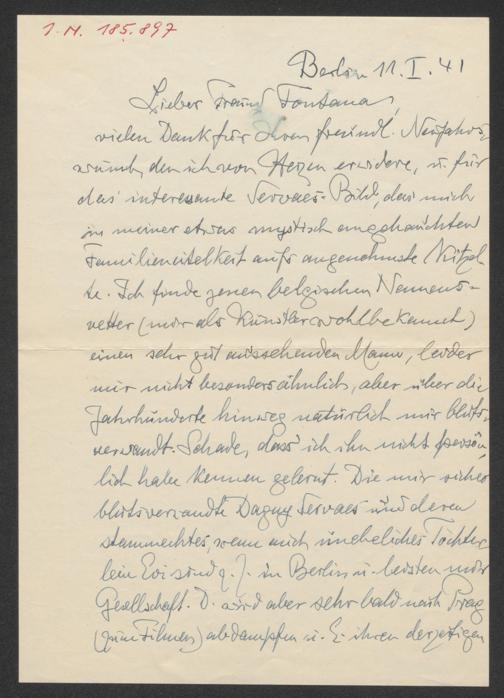 I.N. 185.897
Berlin 11. I. 41
Lieber Freund Fontana,
vielen Dank für Ihren freundl. Neujahrs-
wunsch, den ich von Herzen erwidere, u. für
das interessante Servaes-Bild, das mich
in meiner etwas mystisch angehauchten
Familieneitelkeit aufs angenehmste kitzel-
te. Ich finde jenen belgischen Namens-
vetter (mir als Künstler wohlbekannt)
einen sehr gut aussehenden Mann, leider
mir nicht besonders ähnlich, aber über die
Jahrhunderte hinweg natürlich mir bluts-
verwandt. Schade, dass ich ihn nicht persön-
lich habe kennen gelernt. Die mir sicher
blutsverwandte Dagny Servaes und deren
stammechtes, wenn auch uneheliches Töchter-
lein Evi sind z. Z. in Berlin u. leisten mir
Gesellschaft. D. wird aber sehr bald nach Prag
(zum Filmen) abdampfen u. E. ihren derzeitigen